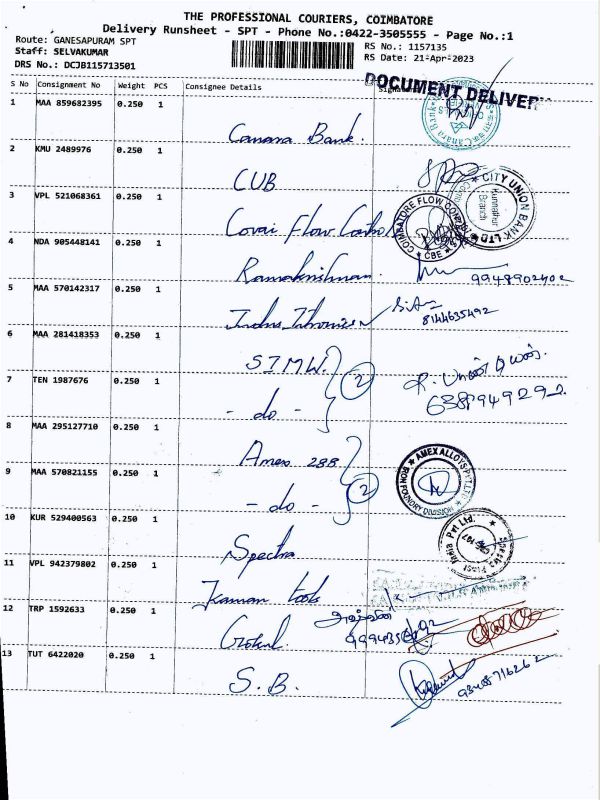 THE PROFESSIONAL COURIERS, COIMBATORE
Delivery Runsheet - SPT - Phone No.:0422-3505555 - Page No.:1
Route: GANESAPURAM SPT
RS No.: 1157135
Staff: SELVAKUMAR
RS Date: 21-Apr-2023
DRS No.: DCJB115713501
DOCUMENT DELIVER
S No Consignment No Weight PCS Consignee Details
1 MAA 859682395 0.250 1 Canara Bank.
2 KMU 2489976 0.250 1 CUB
CITY UNION BANK LTD
Branch
3 VPL 521068361 0.250 1 Covai Flow Control
COIMBATORE FLOW CONTROL
CBE
4 NDA 905448141 0.250 1 Ramakrishnan. 9948902402
5 MAA 570142317 0.250 1 8144635492
6 MAA 281418353 0.250 1 SIMW.
7 TEN 1987676 0.250 1 - do - 2
8 MAA 295127710 0.250 1 Amex 288
9 MAA 570821155 0.250 1 - do - 2
AMEX ALLOYS PVT LTD
IRON FOUNDRY DIVISION
10 KUR 529400563 0.250 1 Spectra
India Pvt Ltd.
11 VPL 942379802 0.250 1 Kaman tools
12 TRP 1592633 0.250 1 Gokul
13 TUT 6422020 0.250 1 S.B.